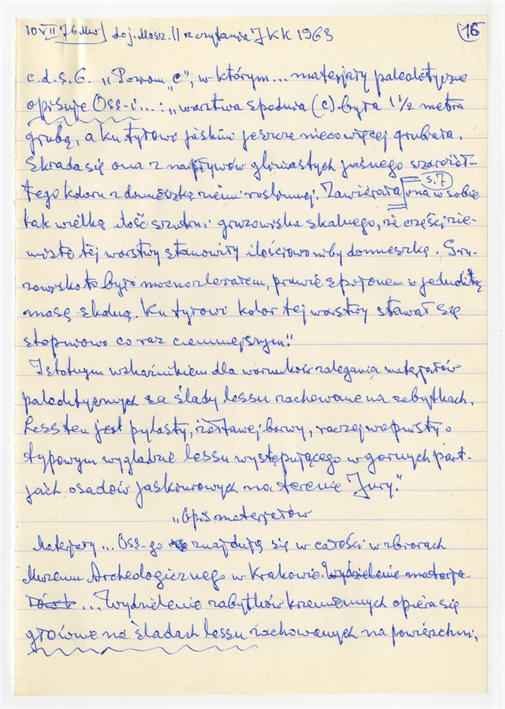 10 VII 76. Mw] do j. Masz. // z czytania JKK 1963 16
c.d.s.6. "Poziom "c", w którym... materjały paleolityczne
opisuje Oss-i...: "warstwa spodnia (c) była 1 1/2 metra
grubą, a ku tyłowi jaskini jeszcze nieco więcej grubała.
Składa się ona z napływów gliniastych jasnego szarożół-
tego koloru z domieszką ziemi roślinnej. Zawierała s.7 ona w sobie
tak wielką ilość szutru i gruzowiska skalnego, że części zie-
miste tej warstwy stanowiły ilościowo niby domieszkę. Gru-
zowisko to było mocno zleżałem, prawie spojonem w jednolitą
masę skalną. Ku tyłowi kolor tej warstwy stawał się
stopniowo co raz ciemniejszym".
Istotnym wskaźnikiem dla warunków zalegania materjałów
paleolitycznych są ślady lessu zachowane na zabytkach.
Less ten jest pylasty, żółtawej barwy, raczej wapnisty o
typowym wyglądzie lessu występującego w górnych part-
jach osadów jaskiniowych na terenie Jury."
"Opis materjałów
Materjały ... Oss-go znajdują się w całości w zbiorach
Muzeum Archeologicznego w Krakowie. Wydzielenie materja
łów ... Wydzielenie zabytków krzemiennych opiera się
głównie na śladach lessu zachowanych na powierzchni,